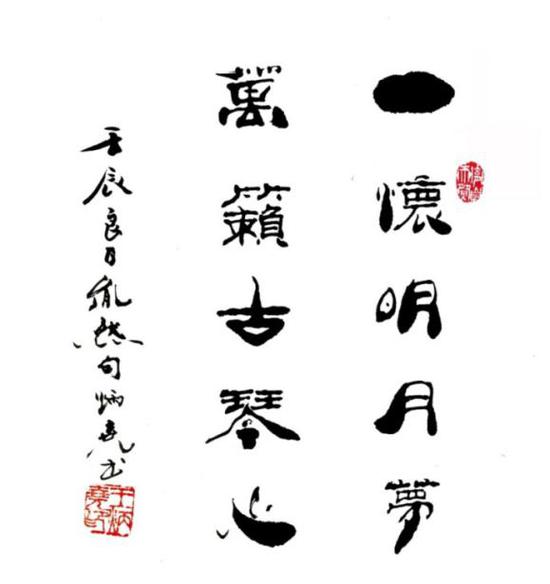 一懷明月夢
萬籟古琴心
壬辰良日胤然句炳堯书